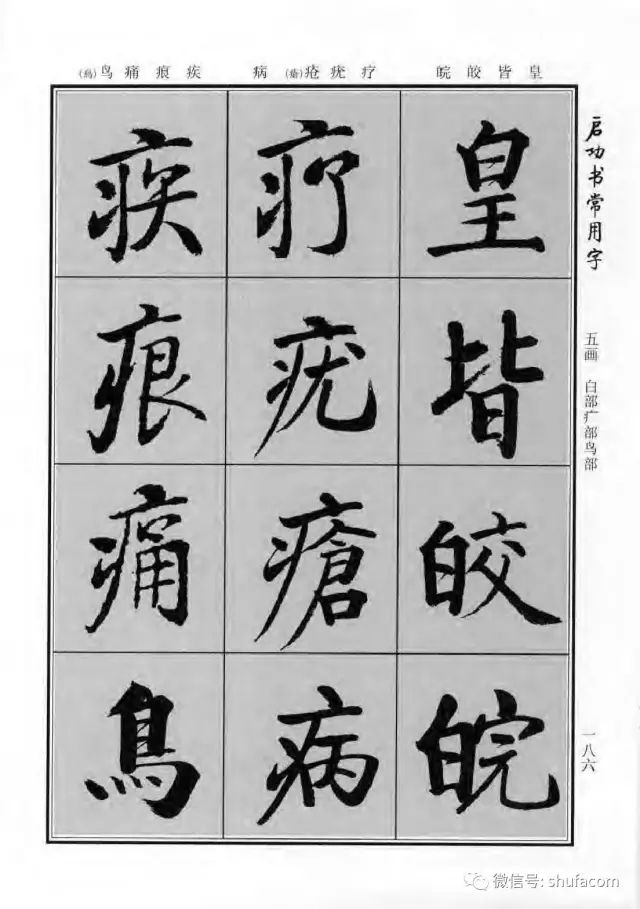 皇皆皎皖
疗疣疮(瘡)病
疾痕痛鸟(鳥)
启功书常用字
五画 白部疒部鸟部
一八六
皇
皆
皎
皖
疗
疣
瘡
病
疾
痕
痛
鳥
微信号: shufacom